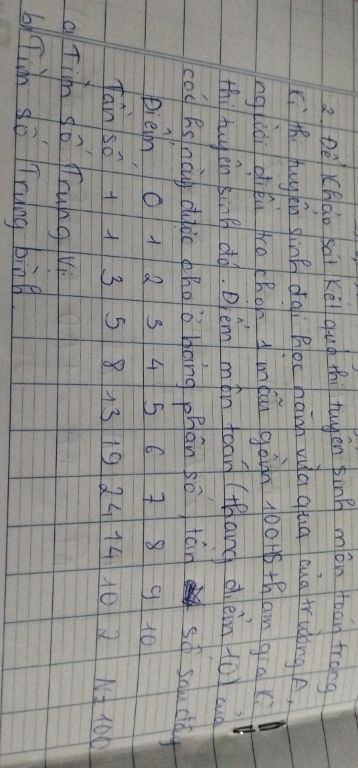 2. Để khảo sát kết quả thi tuyển sinh môn toán trong
kì thi tuyển sinh đại học năm vừa qua của trường A,
người điều tra chọn 1 mẫu gồm 100HS tham gia kì
thi tuyển sinh đó. Điểm môn toán (thang điểm 10) của
các hs này được cho ở bảng phân số, tần số sau đây
Điểm 0 1 2 3 4 5 6 7 8 9 10
Tần số 1 1 3 5 8 13 19 24 14 10 2 N=100
a) Tìm số Trung Vị
b) Tìm số Trung bình